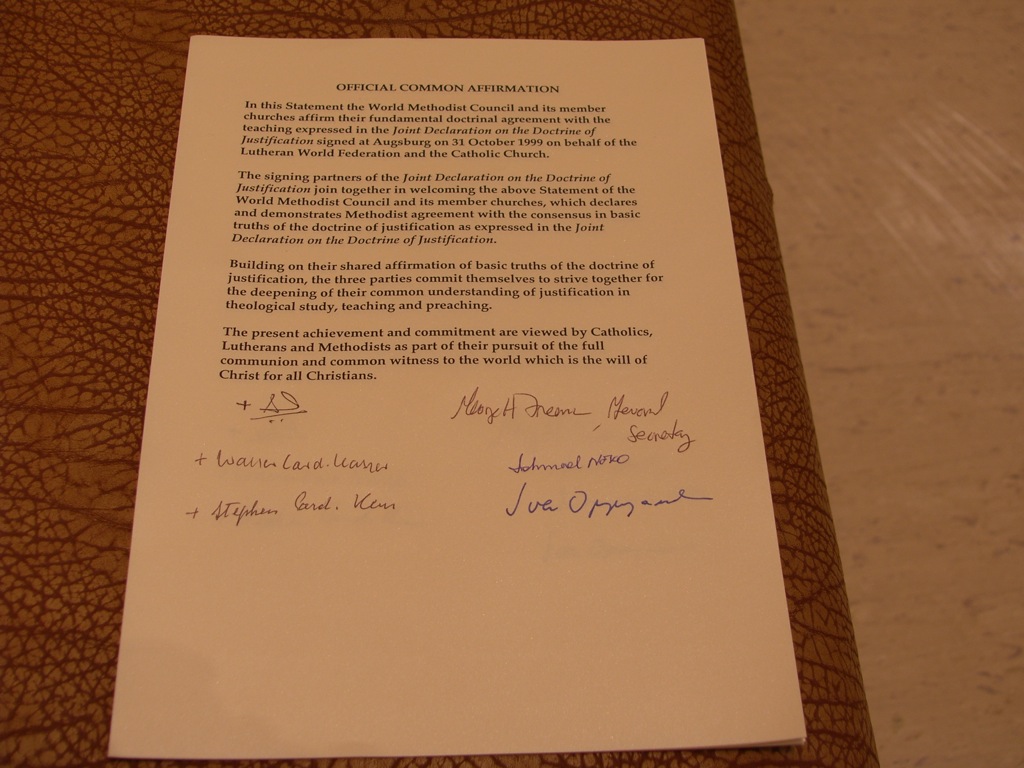 OFFICIAL COMMON AFFIRMATION
In this Statement the World Methodist Council and its member
churches affirm their fundamental doctrinal agreement with the
teaching expressed in the Joint Declaration on the Doctrine of
Justification signed at Augsburg on 31 October 1999 on behalf of the
Lutheran World Federation and the Catholic Church.
The signing partners of the Joint Declaration on the Doctrine of
Justification join together in welcoming the above Statement of the
World Methodist Council and its member churches, which declares
and demonstrates Methodist agreement with the consensus in basic
truths of the doctrine of justification as expressed in the Joint
Declaration on the Doctrine of Justification.
Building on their shared affirmation of basic truths of the doctrine of
justification, the three parties commit themselves to strive together for
the deepening of their common understanding of justification in
theological study, teaching and preaching.
The present achievement and commitment are viewed by Catholics,
Lutherans and Methodists as part of their pursuit of the full
communion and common witness to the world which is the will of
Christ for all Christians.
George H Freeman, General
Secretary
+ Walter Card. Kasper
Ishmael Noko
+ Stephen Card. Kim